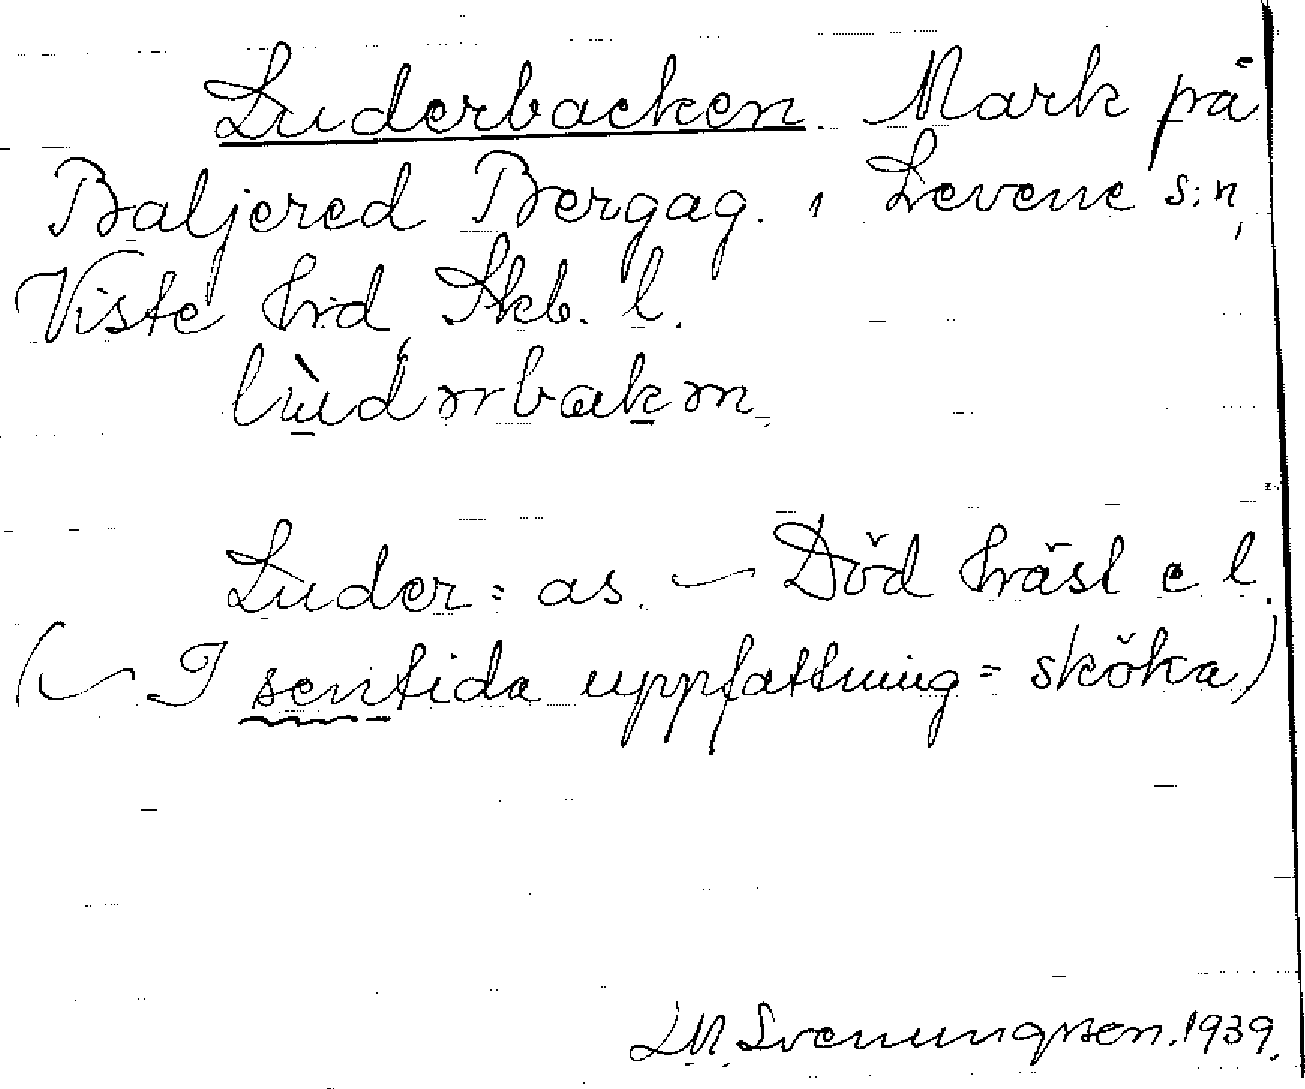 Luderbacken. Mark på
Baljered Bergag. i Levene s:n,
Viste hrd, Skb. l.
lùdərbakən.
Luder = as. — Död häst e l.
(— I sentida uppfattning = sköka)
M. Svenungsson. 1939.